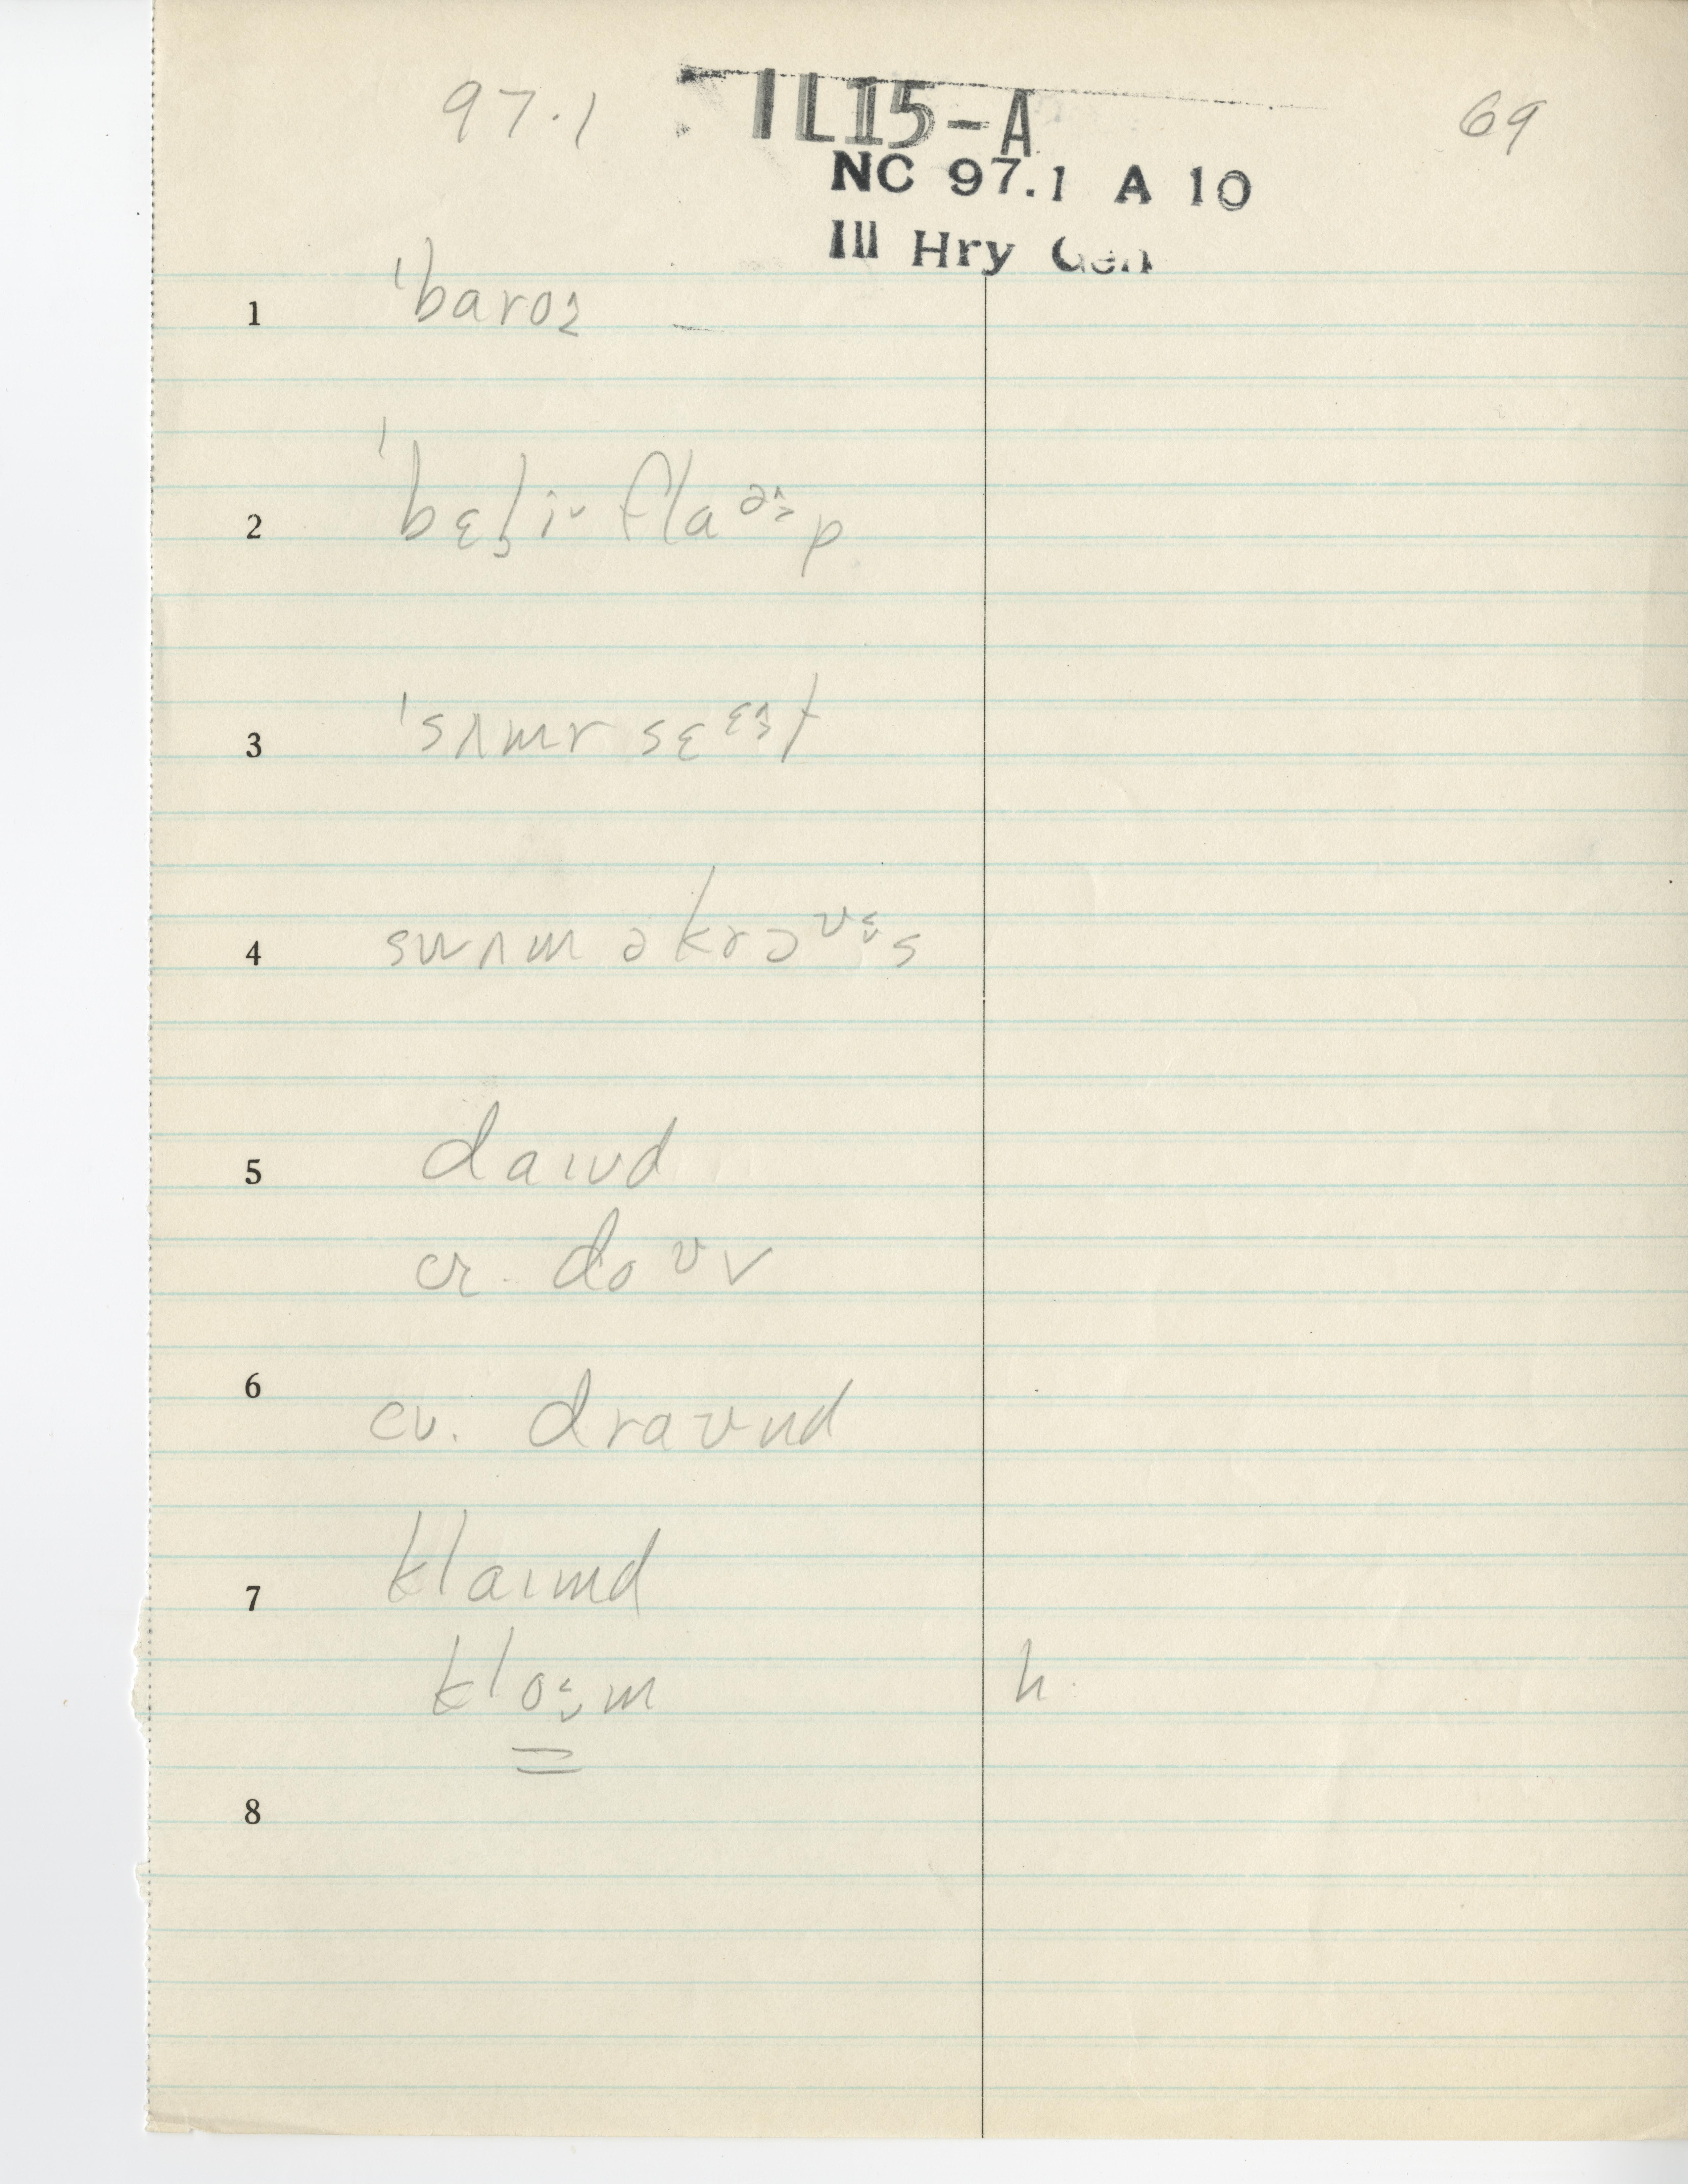 97.1 IL15-A 69
NC 97.1 A 10
Ill Hry Gen
1 ˈbaro
2 ˈbɛlɪ fla p
3 ˈsʌmr sɛ t
4 swʌm əkrɔ s
5 daɪvd
cr. doʊv
6 cv. draʊnd
7 klaɪmd
klo m h.
8